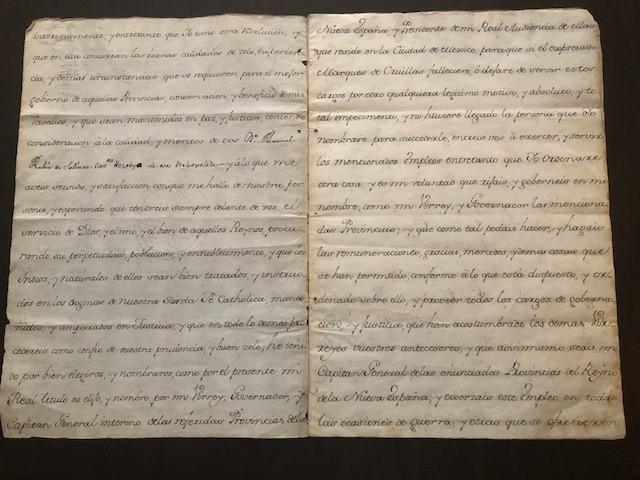 interinamente, y entretanto que Yo tomo otra Resolucion, y
que en ella concurran las buenas calidades de zelo, experien
cia, y demas circunstancias que se requieren para el mejor
govierno de aquellas Provincias, conservacion, y beneficio de mis
Vasallos, y que sean mantenidos en paz, y Justicia, teniendo
consideracion à la calidad, y meritos de vos Dn. Manuel
Rubin de Salinas y à lo que me
aveis servido, y satisfaccion conque me hallo de vuestra per
sona, y esperando que tendreis siempre delante de vos el
servicio de Dios, y el mio, y el bien de aquellos Reynos, procu
rando su perpetuidad, poblacion, y ennoblecimiento, y que los
Indios, y naturales de ellos sean bien tratados, y instrui
dos en los dogmas de nuestra Santa Fè Catholica, mante
nidos, y amparados en Justicia, y que en todo lo demas pro
cedereis como confio de vuestra prudencia, y buen zelo, hè teni
do por bien elegiros, y nombraros, como por el presente mi
Real titulo os elijo, y nombro, por mi Virrey, Governador, y
Capitan General interino de las referidas Provincias de la
Nueva España, y Presidente de mi Real Audiencia de ellas,
que reside en la Ciudad de Mexico, para que si el expresado
Marques de Cruillas falleciere, ò dejare de servir estos
cargos por otro qualquiera legitimo motivo, y absoluto, y to
tal impedimento, y no huviere llegado la persona que Yo
nombrare para succederle, entreis vos à exercer, y servir
los mencionados Empleos entretanto que Yo Ordenare
otra cosa, y es mi voluntad que rijais, y goberneis en mi
nombre, como mi Virrey, y Governador las menciona
das Provincias; y que como tal podais hacer, y hagais
las remuneraciones, gracias, mercedes, y demas cosas que
se han permitido, conforme à lo que està dispuesto, y or
denado sobre ello, y proveèr todos los cargos de governa
cion, y Justicia, que han acostumbrado los demas Vir
reyes vuestros antecesores, y que assimismo seais mi
Capitan General de las enunciadas Provincias del Reyno
de la Nueva España; y exerzais este Empleo en todas
las ocasiones de guerra, y otras que se ofrecieren